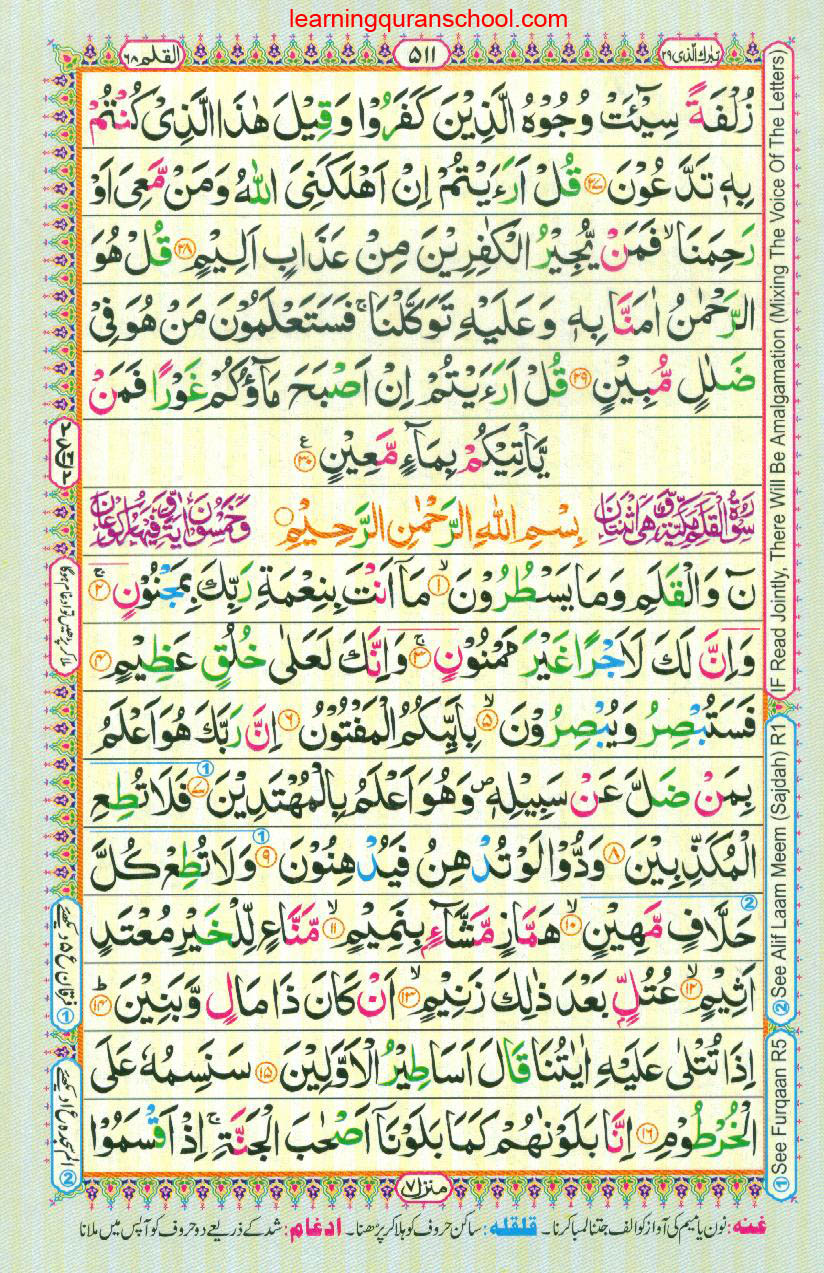 learningquranschool.com
تبٰرك الّذی ٢٩
٥١١
القلم ٦٨
زُلْفَةً سِیْٓـَٔتْ وُجُوْهُ الَّذِیْنَ كَفَرُوْا وَ قِیْلَ هٰذَا الَّذِیْ كُنْتُمْ
بِهٖ تَدَّعُوْنَ ٢٧ قُلْ اَرَءَیْتُمْ اِنْ اَهْلَكَنِیَ اللّٰهُ وَ مَنْ مَّعِیَ اَوْ
رَحِمَنَا ۙ فَمَنْ یُّجِیْرُ الْكٰفِرِیْنَ مِنْ عَذَابٍ اَلِیْمٍ ٢٨ قُلْ هُوَ
الرَّحْمٰنُ اٰمَنَّا بِهٖ وَ عَلَیْهِ تَوَكَّلْنَا ۚ فَسَتَعْلَمُوْنَ مَنْ هُوَ فِیْ
ضَلٰلٍ مُّبِیْنٍ ٢٩ قُلْ اَرَءَیْتُمْ اِنْ اَصْبَحَ مَآؤُكُمْ غَوْرًا فَمَنْ
یَّاْتِیْكُمْ بِمَآءٍ مَّعِیْنٍ ٣٠
سُوْرَةُ الْقَلَمِ مَكِّیَّةٌ وَّ هِیَ اثْنَتَانِ بِسْمِ اللّٰهِ الرَّحْمٰنِ الرَّحِیْمِ وَ خَمْسُوْنَ اٰیَةً وَّ فِیْهَا رُكُوْعَانِ
نٓ وَ الْقَلَمِ وَ مَا یَسْطُرُوْنَ ۙ ١ مَاۤ اَنْتَ بِنِعْمَةِ رَبِّكَ بِمَجْنُوْنٍ ۚ ٢
وَ اِنَّ لَكَ لَاَجْرًا غَیْرَ مَمْنُوْنٍ ۚ ٣ وَ اِنَّكَ لَعَلٰى خُلُقٍ عَظِیْمٍ ٤
فَسَتُبْصِرُ وَ یُبْصِرُوْنَ ۙ ٥ بِاَیِّىكُمُ الْمَفْتُوْنُ ٦ اِنَّ رَبَّكَ هُوَ اَعْلَمُ
بِمَنْ ضَلَّ عَنْ سَبِیْلِهٖ ۪ وَ هُوَ اَعْلَمُ بِالْمُهْتَدِیْنَ ٧ فَلَا تُطِعِ
الْمُكَذِّبِیْنَ ٨ وَدُّوْا لَوْ تُدْهِنُ فَیُدْهِنُوْنَ ٩ وَ لَا تُطِعْ كُلَّ
حَلَّافٍ مَّهِیْنٍ ۙ ١٠ هَمَّازٍ مَّشَّآءٍۭ بِنَمِیْمٍ ۙ ١١ مَّنَّاعٍ لِّلْخَیْرِ مُعْتَدٍ
اَثِیْمٍ ۙ ١٢ عُتُلٍّۭ بَعْدَ ذٰلِكَ زَنِیْمٍ ۙ ١٣ اَنْ كَانَ ذَا مَالٍ وَّ بَنِیْنَ ؕ ١٤
اِذَا تُتْلٰى عَلَیْهِ اٰیٰتُنَا قَالَ اَسَاطِیْرُ الْاَوَّلِیْنَ ١٥ سَنَسِمُهٗ عَلَى
الْخُرْطُوْمِ ١٦ اِنَّا بَلَوْنٰهُمْ كَمَا بَلَوْنَاۤ اَصْحٰبَ الْجَنَّةِ ۚ اِذْ اَقْسَمُوْا
منزل ٧
غنه: نون یا میم کی آواز کو الف جتنا لمبا کرنا۔ قلقله: ساکن حروف کو ہلا کر پڑھنا۔ ادغام: شد کے ذریعے دو حروف کو آپس میں ملانا
IF Read Jointly, There Will Be Amalgamation (Mixing The Voice Of The Letters)
② See Alif Laam Meem (Sajdah) R1
① See Furqaan R5
ملا کر پڑھیں تو ادغام ہوگا
① فرقان ع ۵ دیکھیے
② الم سجدہ ع ۱ دیکھیے